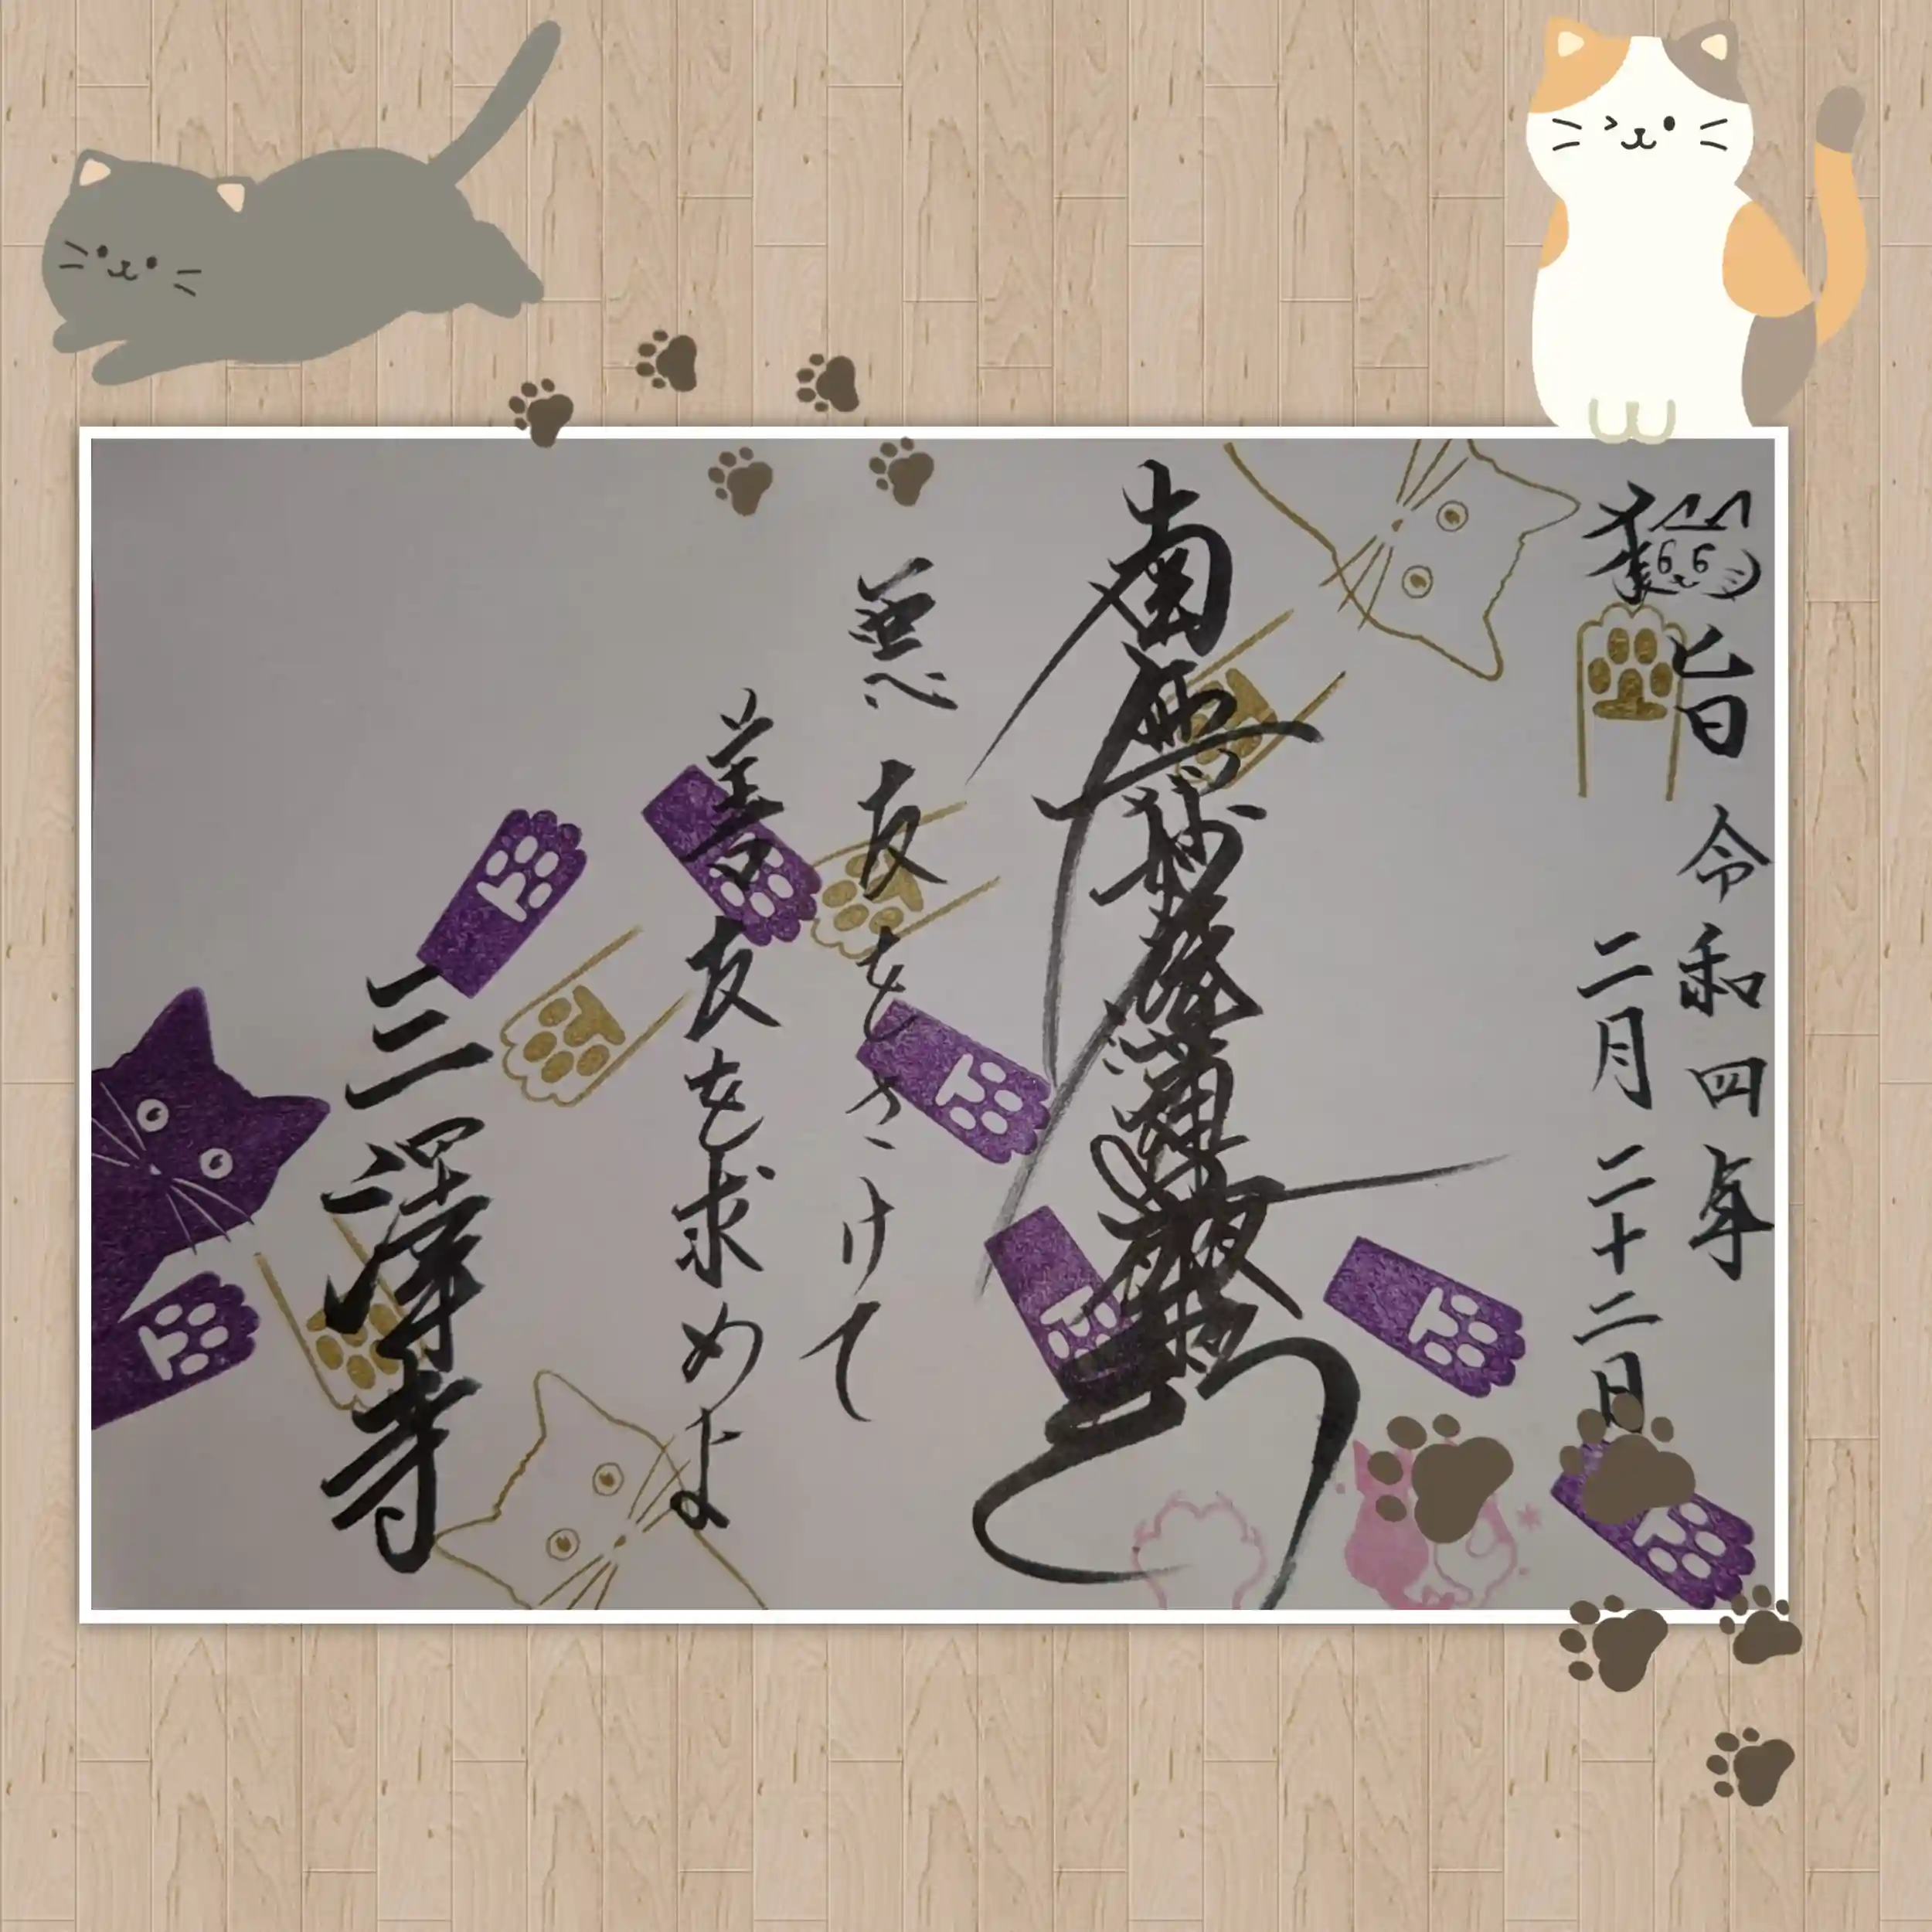 猫旨 令和四年
二月二十二日
南無妙法蓮華経
悪友をさけて
善友を求めよ
三澤寺